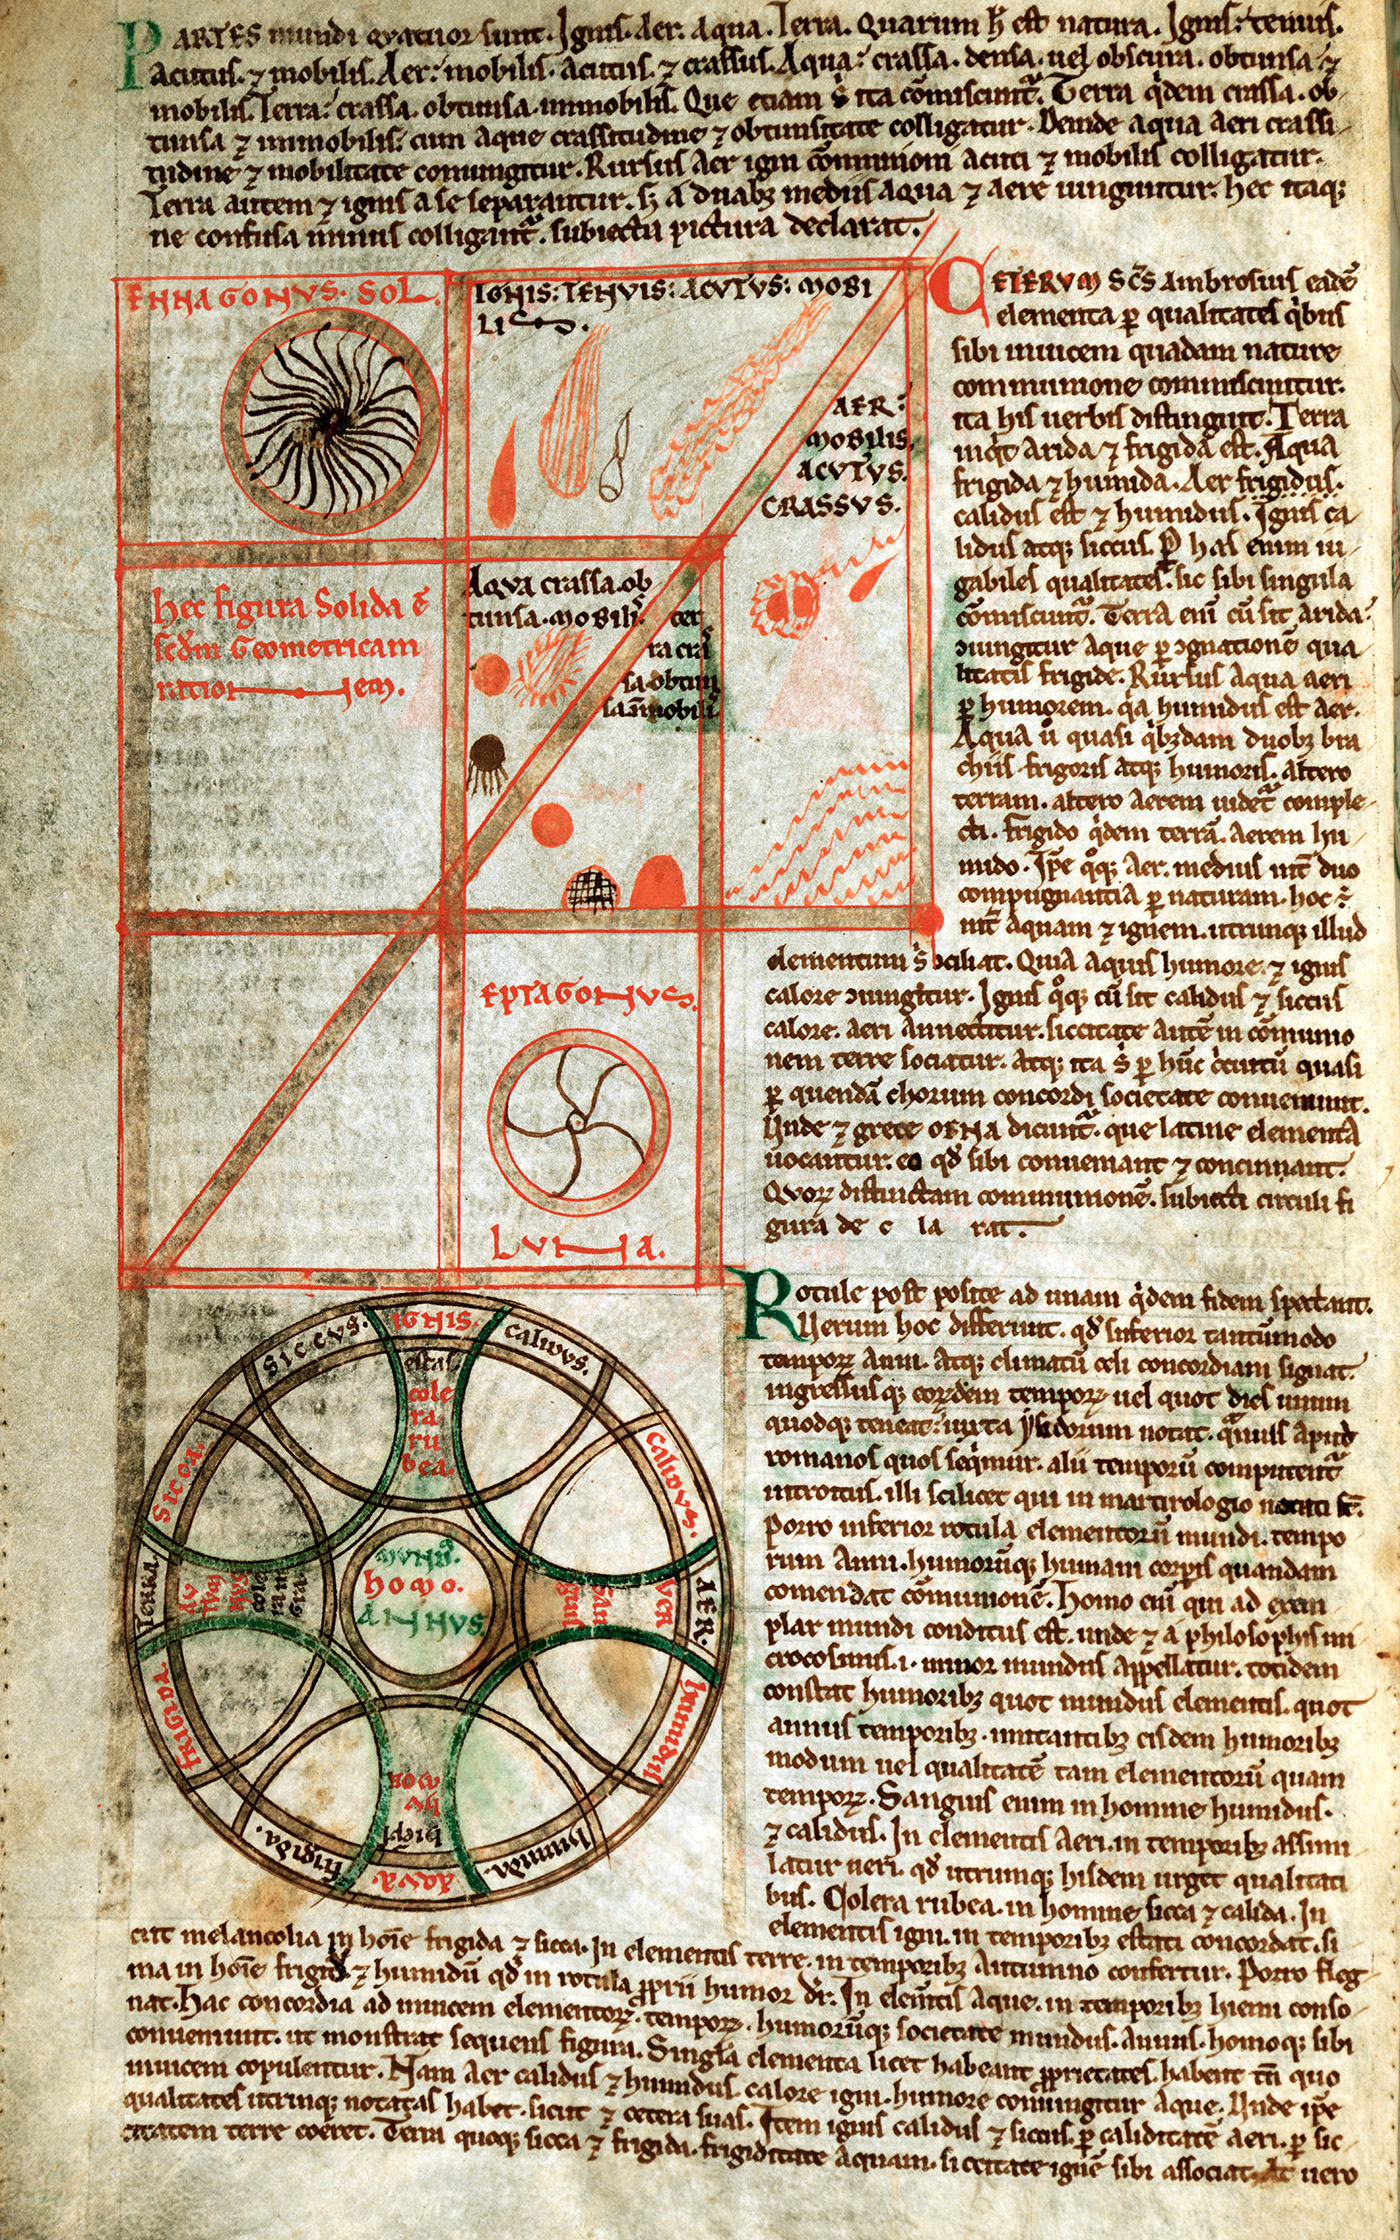 PARTES mundi quatuor sunt. Ignis. Aer. Aqua. Terra. Quarum h̄ est natura. Ignis: tenuis.
acutus. ⁊ mobilis. Aer: mobilis. acutus. ⁊ crassus. Aqua: crassa. densa. uel obscura. obtunsa. ⁊
mobilis. Terra: crassa. obtunsa. inmobilis. Que etiam s̄ ita cōmiscunt᷑. Terra q̇dem crassa. ob-
tunsa ⁊ inmobilis: cum aque crassitudine ⁊ obtunsitate colligatur. Deinde aqua aeri crassi-
tudine ⁊ mobilitate coniungitur. Rursus aer igni cōmunioni acuti ⁊ mobilis colligatur.
Terra autem ⁊ ignis a se separantur. s; a duabꝫ mediis aqua ⁊ aere iunguntur. hec itaqꝫ
ne confusa minus colligant᷑. subiecta pictura declarat.
ENNAGONUS. SOL.
IGNIS: TENVIS: ACVTVS: MOBI
LIS.
AER:
MOBILIS.
ACVTVS.
CRASSVS.
hec figura Solida ē
scdm Geometricam
rationem.
Aqua crassa. ob
tunsa. mobilis.
ter
ra cras
sa. obtun
sa. īmobilis
EPTAGONVS.
LVNA.
CETERVM Sc̄s Ambrosius eadē
elementa ꝑ qualitates q̇bus
sibi inuicem quadam nature
communione commiscuntur.
ita his uerbis distinguit. Terra
inqt arida ⁊ frigida est. Aqua
frigida ⁊ humida. Aer frigidus.
calidus est ⁊ humidus. Ignis ca-
lidus atqꝫ siccus. ꝑ has enim iu-
gabiles qualitates. sic sibi singula
cōmiscunt᷑. Terra eni cū sit arida.
ↄiungitur aque ꝑ ↄgnationē qua-
litatis frigide. Rursus aqua aeri
ꝑ humorem. qa humidus est aer.
Aqua ů quasi q̇bꝫdam duobꝫ bra
chiis frigoris atqꝫ humoris. altero
terram. altero aerem uidet᷑ comple-
cti. frigido q̇dem terrā. aerem hu-
mido. Ip̄e qͦqꝫ aer. medius int̄ duo
compugnantia ꝑ naturam. hoc ē
int̄ aquam ⁊ ignem. utrunqꝫ illud
elementum s̄ ↄciliat. Quia aquis humore. ⁊ ignis
calore ↄiungitur. Ignis qͦqꝫ cū sit calidus ⁊ siccus
calore. aeri annectitur. siccitate autē in cōmunio
nem terre sociatur. atqꝫ ita s̄ ꝑ hūc circuitū quasi
ꝑ quendā chorum concordi societate conueniunt.
Unde ⁊ grece dicunt᷑. que latine elementa
uocantur. eo qd̄ sibi conueniant ⁊ concinnant.
Quoꝝ distinctam communionē. subiecti circuli fi
gura de c la rat.
Rotule post posite ad unam q̇dem fidem spectant.
Uerum hoc differunt. qd̄ inferior tantūmodo
tempoꝝ anni. atqꝫ climatū celi concordiam signat.
ingressusqꝫ eoꝝdem tempoꝝ uel quot dies unum
quodqꝫ teneat: iuxta ysidorum notat. qͣmuis apud
romanos quos seq̇mur. alii temporū computent᷑
introitus. illi scilicet qui in martirologio notati st̄.
Porro inferior rotula elementorū mundi. tempo
rum anni. humorūqꝫ humani corꝑis quandam
comendat cōmunionē. Homo eni qui ad exem-
plar mundi conditus est. unde ⁊ a philosophis mi
crocosmus. i. minor mundus appellatur. totidem
constat humoribꝫ quot mundus elementis. quot
annus temporibꝫ. imitantibꝫ eisdem humoribꝫ
modum uel qualitatē tam elementorū quam
tempoꝝ. Sanguis enim in homine humidus.
⁊ calidus. In elementis aeri. in temporibꝫ assimi
latur ueri. qd̄ utrumqꝫ hisdem urget qualitati
bus. Colera rubea. in homine sicca ⁊ calida. In
elementis igni. in temporibꝫ estati concordat. si
IGNIS.
calidus.
calidus.
AER.
humidus
humida.
AQVA
frigida.
FRIGIDA.
TERRA.
Sicca.
siccus.
estas.
cole
ra
ru
bea.
VER
San
guis
hiems
AV
TVM
NVS
cole
ra ni
gra.
MVND'.
homo.
ANNVS.
cut melancolia in hoīe frigida ⁊ sicca. In elementis terre. in temporibꝫ autumno confertur. Porro fleg-
ma in hoīe frigid ⁊ humidū qd̄ in rotula ꝓprii humor dr̄. In elemtis aque. in temporibꝫ hiemi conso-
nat. Hac concordia ad inuicem elementoꝝ. tempoꝝ. humorūqꝫ societate mundus. annus. homoqꝫ sibi
conueniunt. ut monstrat sequens figura. Singla elementa licet habeant ꝓprietates. habent tn̄ quo
inuicem copulentur. Nam aer calidus ⁊ humidus. calore igni. humore coniungitur aque. Unde ip̄e
qualitates utrinqꝫ notatas habet. sicut ⁊ cetera suas. Item ignis calidus ⁊ siccus. ꝑ caliditatē aeri. ꝑ sic-
citatem terre coeret. Terra quoqꝫ sicca ⁊ frigida. frigiditate aquam. siccitate ignē sibi associat. At uero